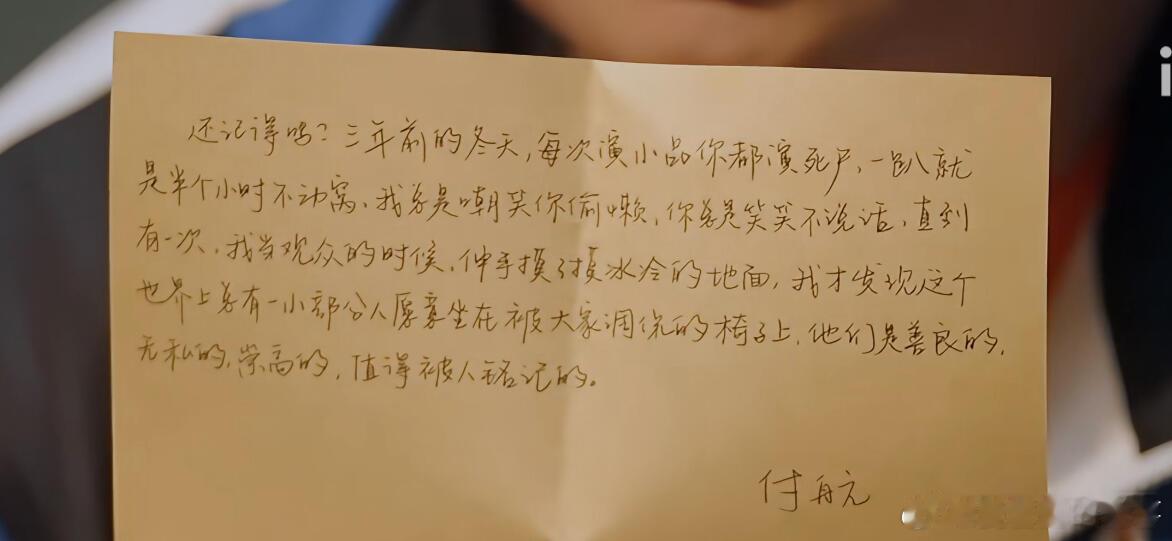 还记得吗？三年前的冬天，每次演小品你都演死尸，一趴就
是半个小时不动窝，我总是嘲笑你偷懒，你总是笑笑不说话，直到
有一次，我当观众的时候，伸手摸了摸冰冷的地面，我才发现这个
世界上总有一小部分人愿意坐在被大家调侃的椅子上，他们是善良的，
无私的，崇高的，值得被人铭记的。
付航
i